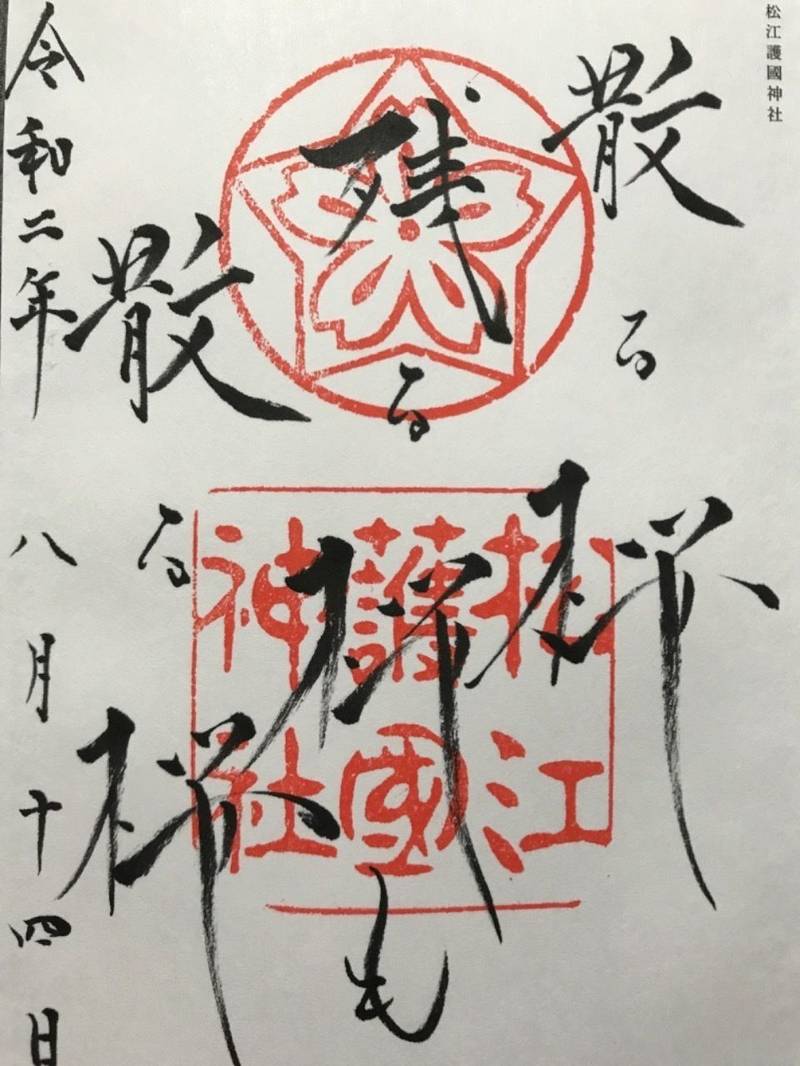 松江護國神社
散る桜
残る桜も
散る桜
令和二年八月十四日
松江
護國
神社